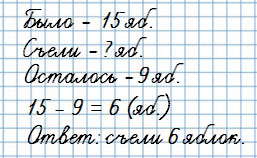 Было – 15 яб.
Съели – ? яб.
Осталось – 9 яб.
15 – 9 = 6 (яб.)
Ответ: съели 6 яблок.